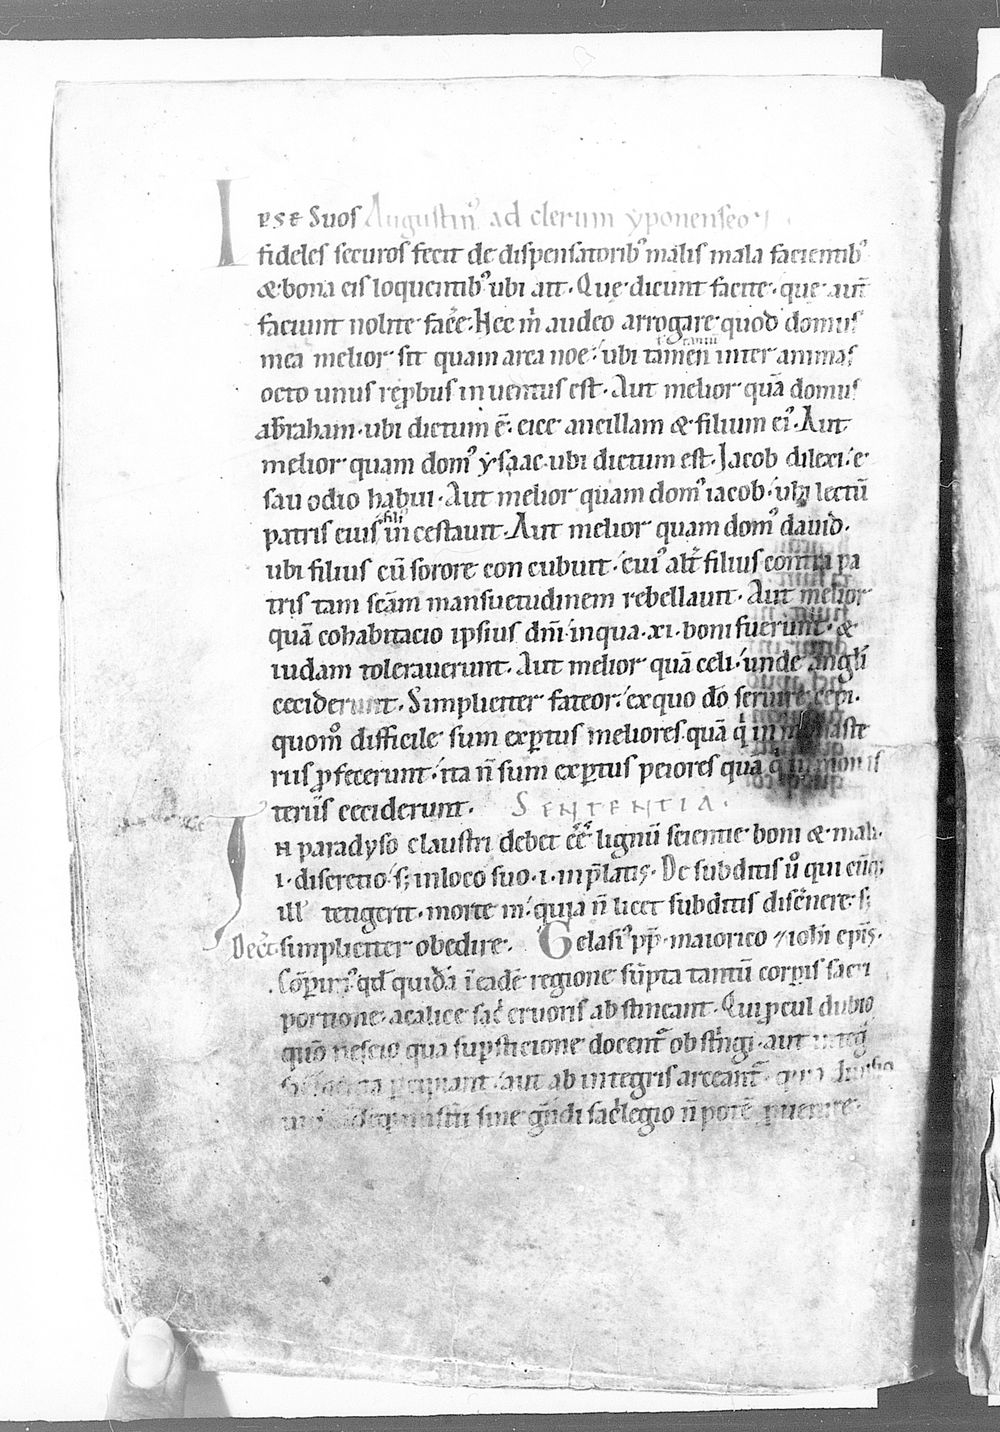 Ipse suos Augustin᾽ ad clerum ẏponenseo
fideles securos fecit de dispensatorib᾽ malis mala facientib᾽
& bona eis loquentib᾽ ubi ait. Que dicunt facite. que aut̄
faciunt nolite fac̄e. Hec m̄ audeo arrogare quod domus
mea melior sit quam arca noe. ubi tamen inter animas
octo unus rep̱bus inuentus est. Aut melior quā domus
abraham. ubi dictum ē. eice ancillam & filium ei᾽. Aut
melior quam dom᾽ ẏsaac. ubi dictum est. Jacob dilexi. e
sau odio habui. Aut melior quam dom᾽ iacob. ubi lectū
patris eius filī incestauit. Aut melior quam dom᾽ dauid.
ubi filius cū sorore concubuit. cui᾽ alt̄ filius contra pa
tris tam sc̄am mansuetudinem rebellauit. Aut melior
quā cohabitacio ipsius dn̄i. in qua .xi. boni fuerunt. &
iudam tolerauerunt. Aut melior quā celi. unde angli
ceciderunt. Simpliciter fateor. ex quo dō seruire cepi.
quom̄ difficile sum exp̱tus meliores quā q̄ in monaste
riis p̱fecerunt. ita n̄ sum exp̱tus peiores quā q̄ in monis
teriis ceciderunt. SENTENTIA.
In paradyso claustri debet ēē lignū scientie boni & mali.
.i. discretio. s; in loco suo .i. in p̄latis. De subditis ū qui
ill tetigerit. morte m̄. quia n̄ licet subditis disc̄nere. s;
Decr̄. simpliciter obedire. Gelasi᾽ pp̄. maiorico & iohi ep̄is.
Cōperim᾽. qd̄ quidā ī eadē regione sūpta tantū corp̱is sacri
portione. a calice sac̄ cruoris abstineant. Qui p̱cul dubio
quō nescio qua sup̱sticione docent᾽ obst̄ngi. aut inteḡ
p̱cipiant. aut ab integris arceant᾽.
sine g̱ndi sac̄legio n̄ potē p̱uenire.